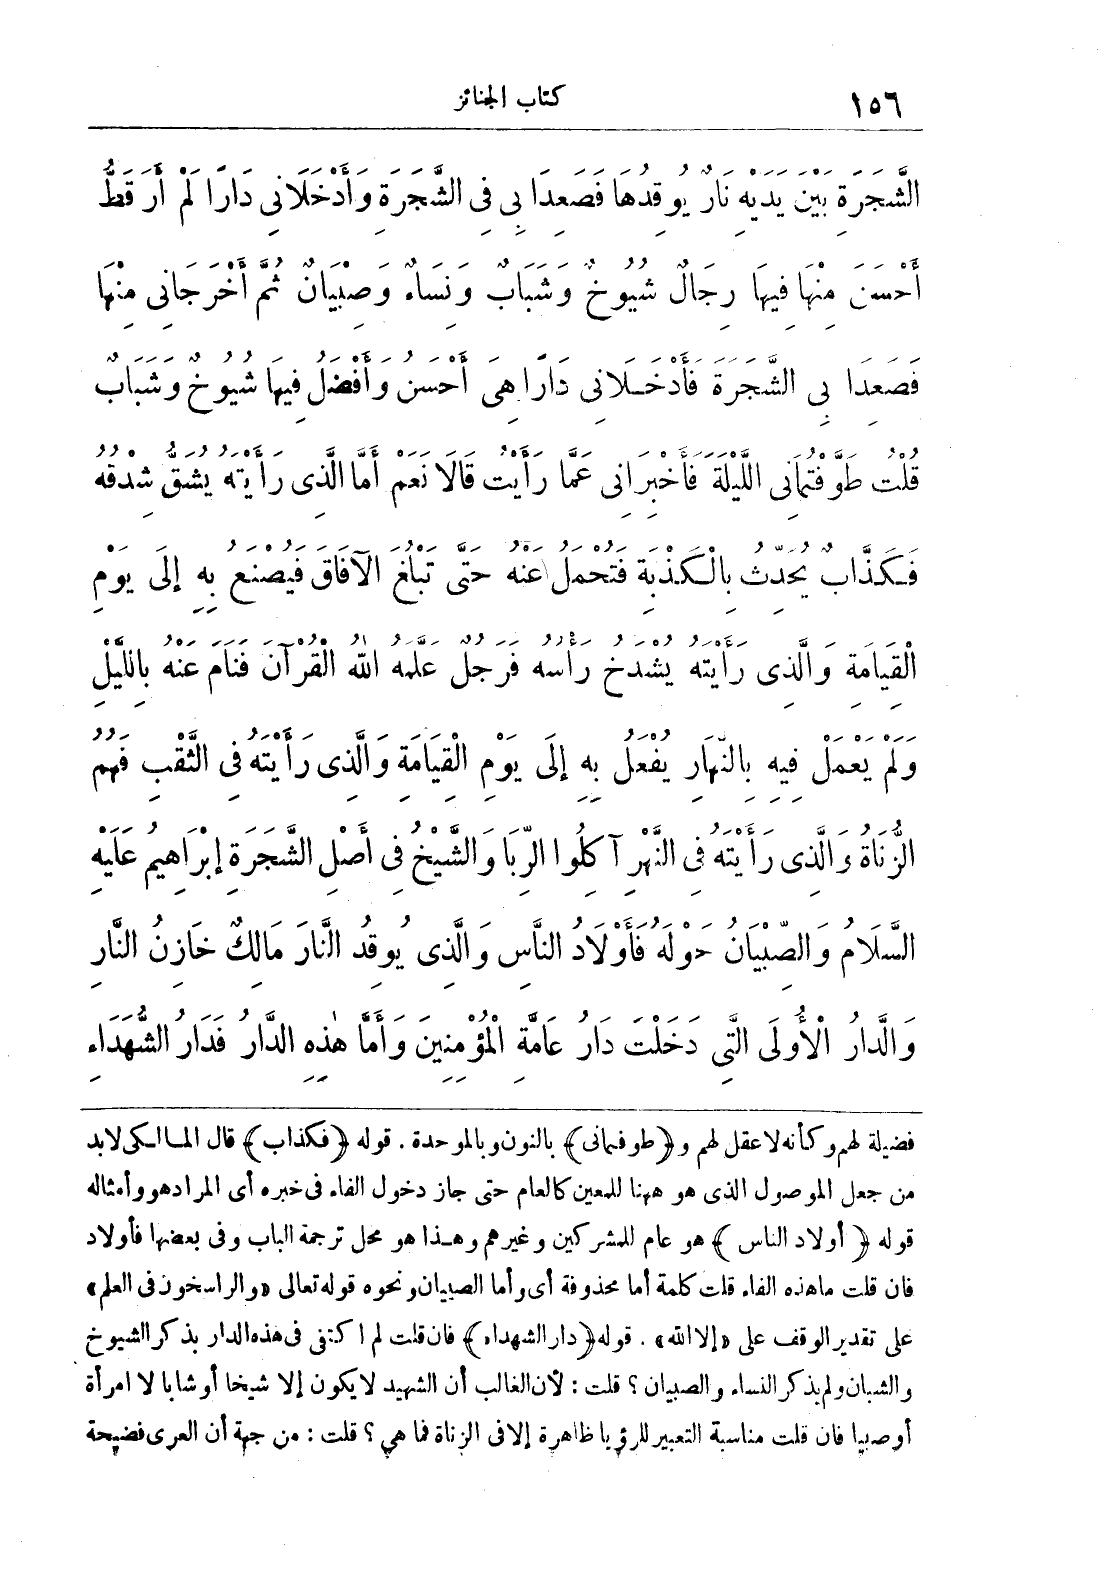 ١٥٦ كتاب الجنائز
الشَّجَرَةِ بَيْنَ يَدَيْهِ نَارٌ يُوقِدُهَا فَصَعِدَا بِي فِي الشَّجَرَةِ وَأَدْخَلَانِي دَارًا لَمْ أَرَ قَطُّ
أَحْسَنَ مِنْهَا فِيهَا رِجَالٌ شُيُوخٌ وَشَبَابٌ وَنِسَاءٌ وَصِبْيَانٌ ثُمَّ أَخْرَجَانِي مِنْهَا
فَصَعِدَا بِي الشَّجَرَةَ فَأَدْخَلَانِي دَارًا هِيَ أَحْسَنُ وَأَفْضَلُ فِيهَا شُيُوخٌ وَشَبَابٌ
قُلْتُ طَوَّفْتُمَانِي اللَّيْلَةَ فَأَخْبِرَانِي عَمَّا رَأَيْتُ قَالَا نَعَمْ أَمَّا الَّذِي رَأَيْتَهُ يُشَقُّ شِدْقُهُ
فَكَذَّابٌ يُحَدِّثُ بِالْكَذْبَةِ فَتُحْمَلُ عَنْهُ حَتَّى تَبْلُغَ الْآفَاقَ فَيُصْنَعُ بِهِ إِلَى يَوْمِ
الْقِيَامَةِ وَالَّذِي رَأَيْتَهُ يُشْدَخُ رَأْسُهُ فَرَجُلٌ عَلَّمَهُ اللهُ الْقُرْآنَ فَنَامَ عَنْهُ بِاللَّيْلِ
وَلَمْ يَعْمَلْ فِيهِ بِالنَّهَارِ يُفْعَلُ بِهِ إِلَى يَوْمِ الْقِيَامَةِ وَالَّذِي رَأَيْتَهُ فِي الثَّقْبِ فَهُمُ
الزُّنَاةُ وَالَّذِي رَأَيْتَهُ فِي النَّهْرِ آكِلُوا الرِّبَا وَالشَّيْخُ فِي أَصْلِ الشَّجَرَةِ إِبْرَاهِيمُ عَلَيْهِ
السَّلَامُ وَالصِّبْيَانُ حَوْلَهُ فَأَوْلَادُ النَّاسِ وَالَّذِي يُوقِدُ النَّارَ مَالِكٌ خَازِنُ النَّارِ
وَالدَّارُ الْأُولَى الَّتِي دَخَلْتَ دَارُ عَامَّةِ الْمُؤْمِنِينَ وَأَمَّا هٰذِهِ الدَّارُ فَدَارُ الشُّهَدَاءِ
فضيلة لهم وكأنه لا عقل لهم و﴿طوفتماني﴾ بالنون وبالموحدة . قوله ﴿فكذاب﴾ قال المالكي لا بد
من جعل الموصول الذى هو ههنا للمعين كالعام حتى جاز دخول الفاء فى خبره أى المراد هو وأمثاله
قوله ﴿أولاد الناس﴾ هو عام للمشركين وغيرهم وهذا هو محل ترجمة الباب وفى بعضها فأولاد
فان قلت ما هذه الفاء قلت كلمة أما محذوفة أى وأما الصبيان ونحوه قوله تعالى «والراسخون فى العلم»
على تقدير الوقف على «إلا الله» . قوله ﴿دار الشهداء﴾ فان قلت لم اكتفى فى هذه الدار بذكر الشيوخ
والشبان ولم يذكر النساء والصبيان ؟ قلت : لأن الغالب أن الشهيد لا يكون إلا شيخا أو شابا لا امرأة
أو صبيا فان قلت مناسبة التعبير للرؤيا ظاهرة إلا فى الزناة فما هي ؟ قلت : من جهة أن العرى فضيحة